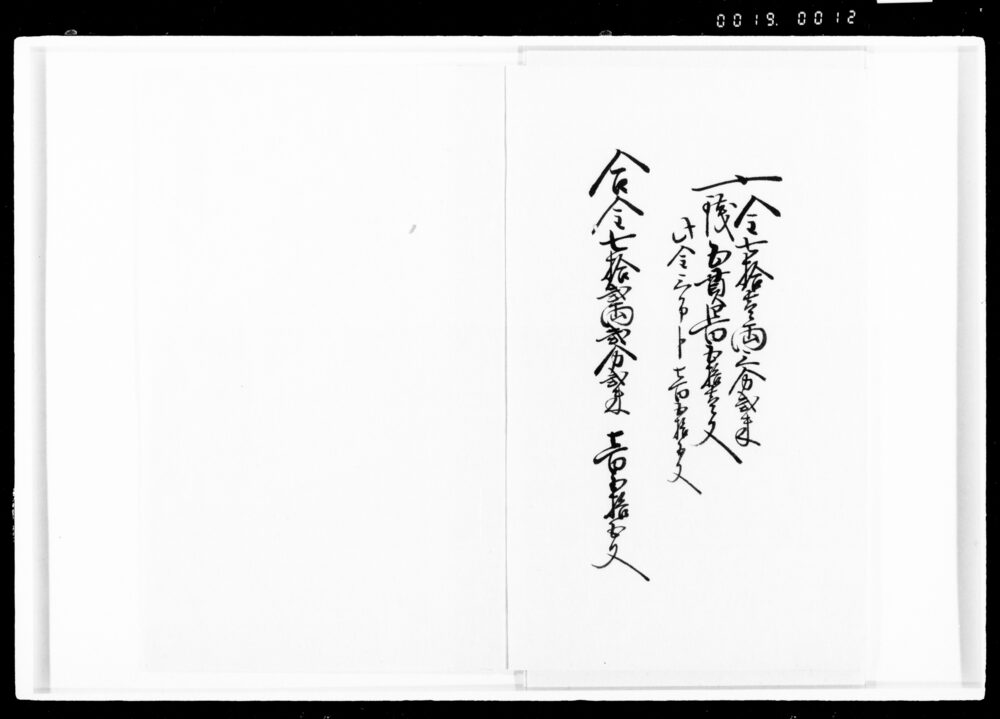 0019. 0012
一 金七拾壱両三分弐朱
銭五貫 百五拾壱文
此金三分ト七百五拾五文
合金七拾弐両弐分弐朱 七百五拾五文